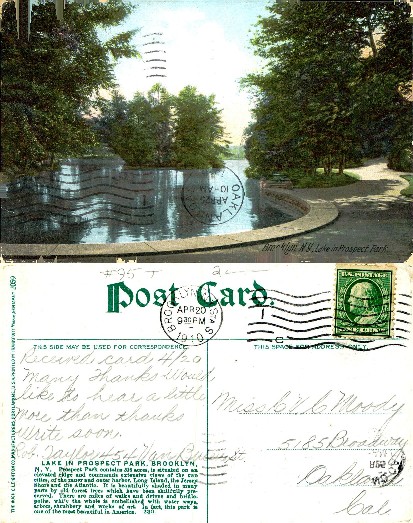 OAKLAND
APR 25
10-AM
Brooklyn, N.Y., Lake in Prospect Park.
#95
Post Card.
THIS SIDE MAY BE USED FOR CORRESPONDENCE
THIS SPACE FOR ADDRESS ONLY.
APR 20
930PM
1910
Received card 4/20
Many thanks Would
like to hear a little
more than thanks
Write soon.
Taylor 454 Van Buren St.
Miss C. M. Moody
5185 Broadway
Oakland
Cal
LAKE IN PROSPECT PARK, BROOKLYN,
N. Y. Prospect Park contains 526 acres, is situated on an
elevated ridge and commands extensive views of the two
cities, of the inner and outer harbor, Long Island, the Jersey
Shore and the Atlantic. It is beautifully shaded in many
parts by old forest trees which have been skilfully pre-
served. There are miles of walks and drives and bridle
paths, while the whole is embellished with water ways,
arbors, shrubbery and works of art. In fact, this park is
one of the most beautiful in America.